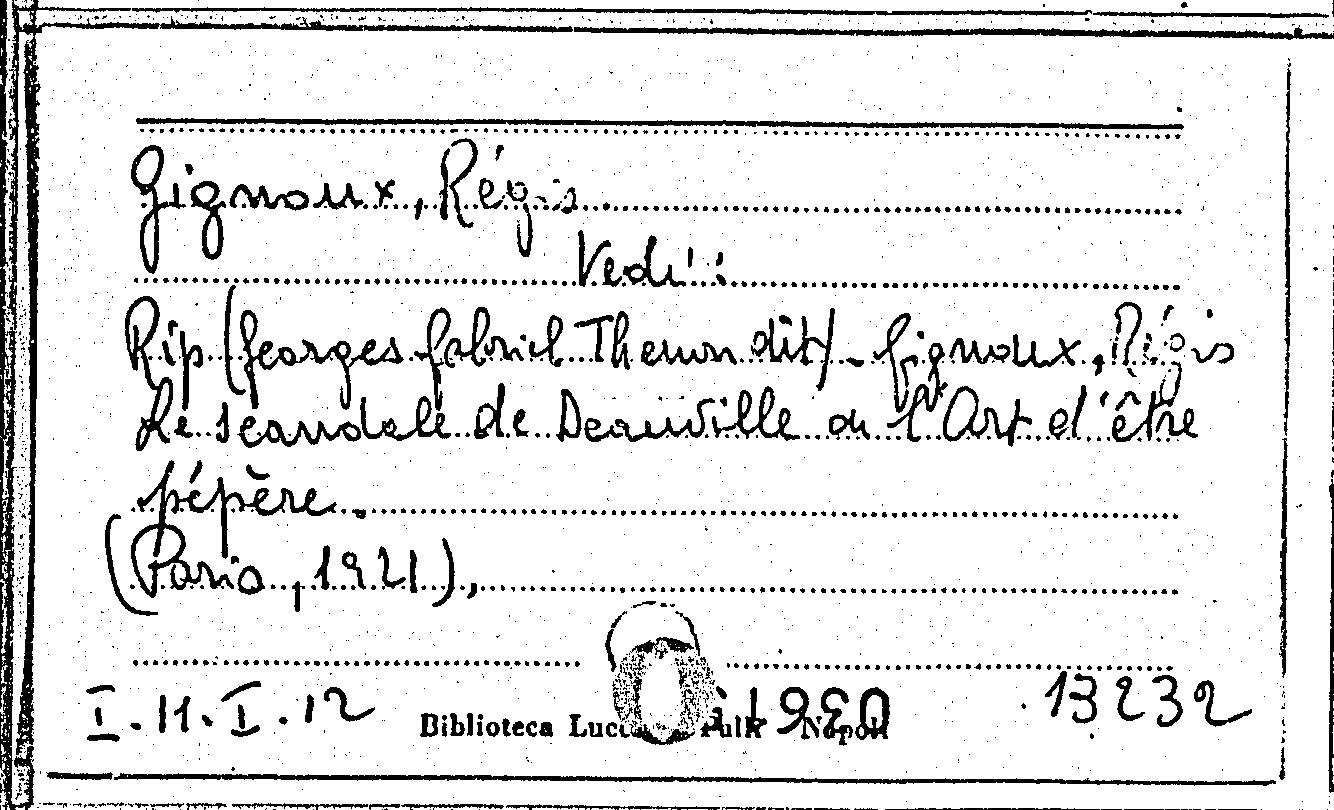 Gignoux, Régis.
Vedi:
Rip (Georges Gabriel Thenon dit) - Gignoux, Régis
Le scandale de Deauville ou l'Art d'être
pépère.
(Paris, 1921),
I.11.I.12 13232
Biblioteca Napoli